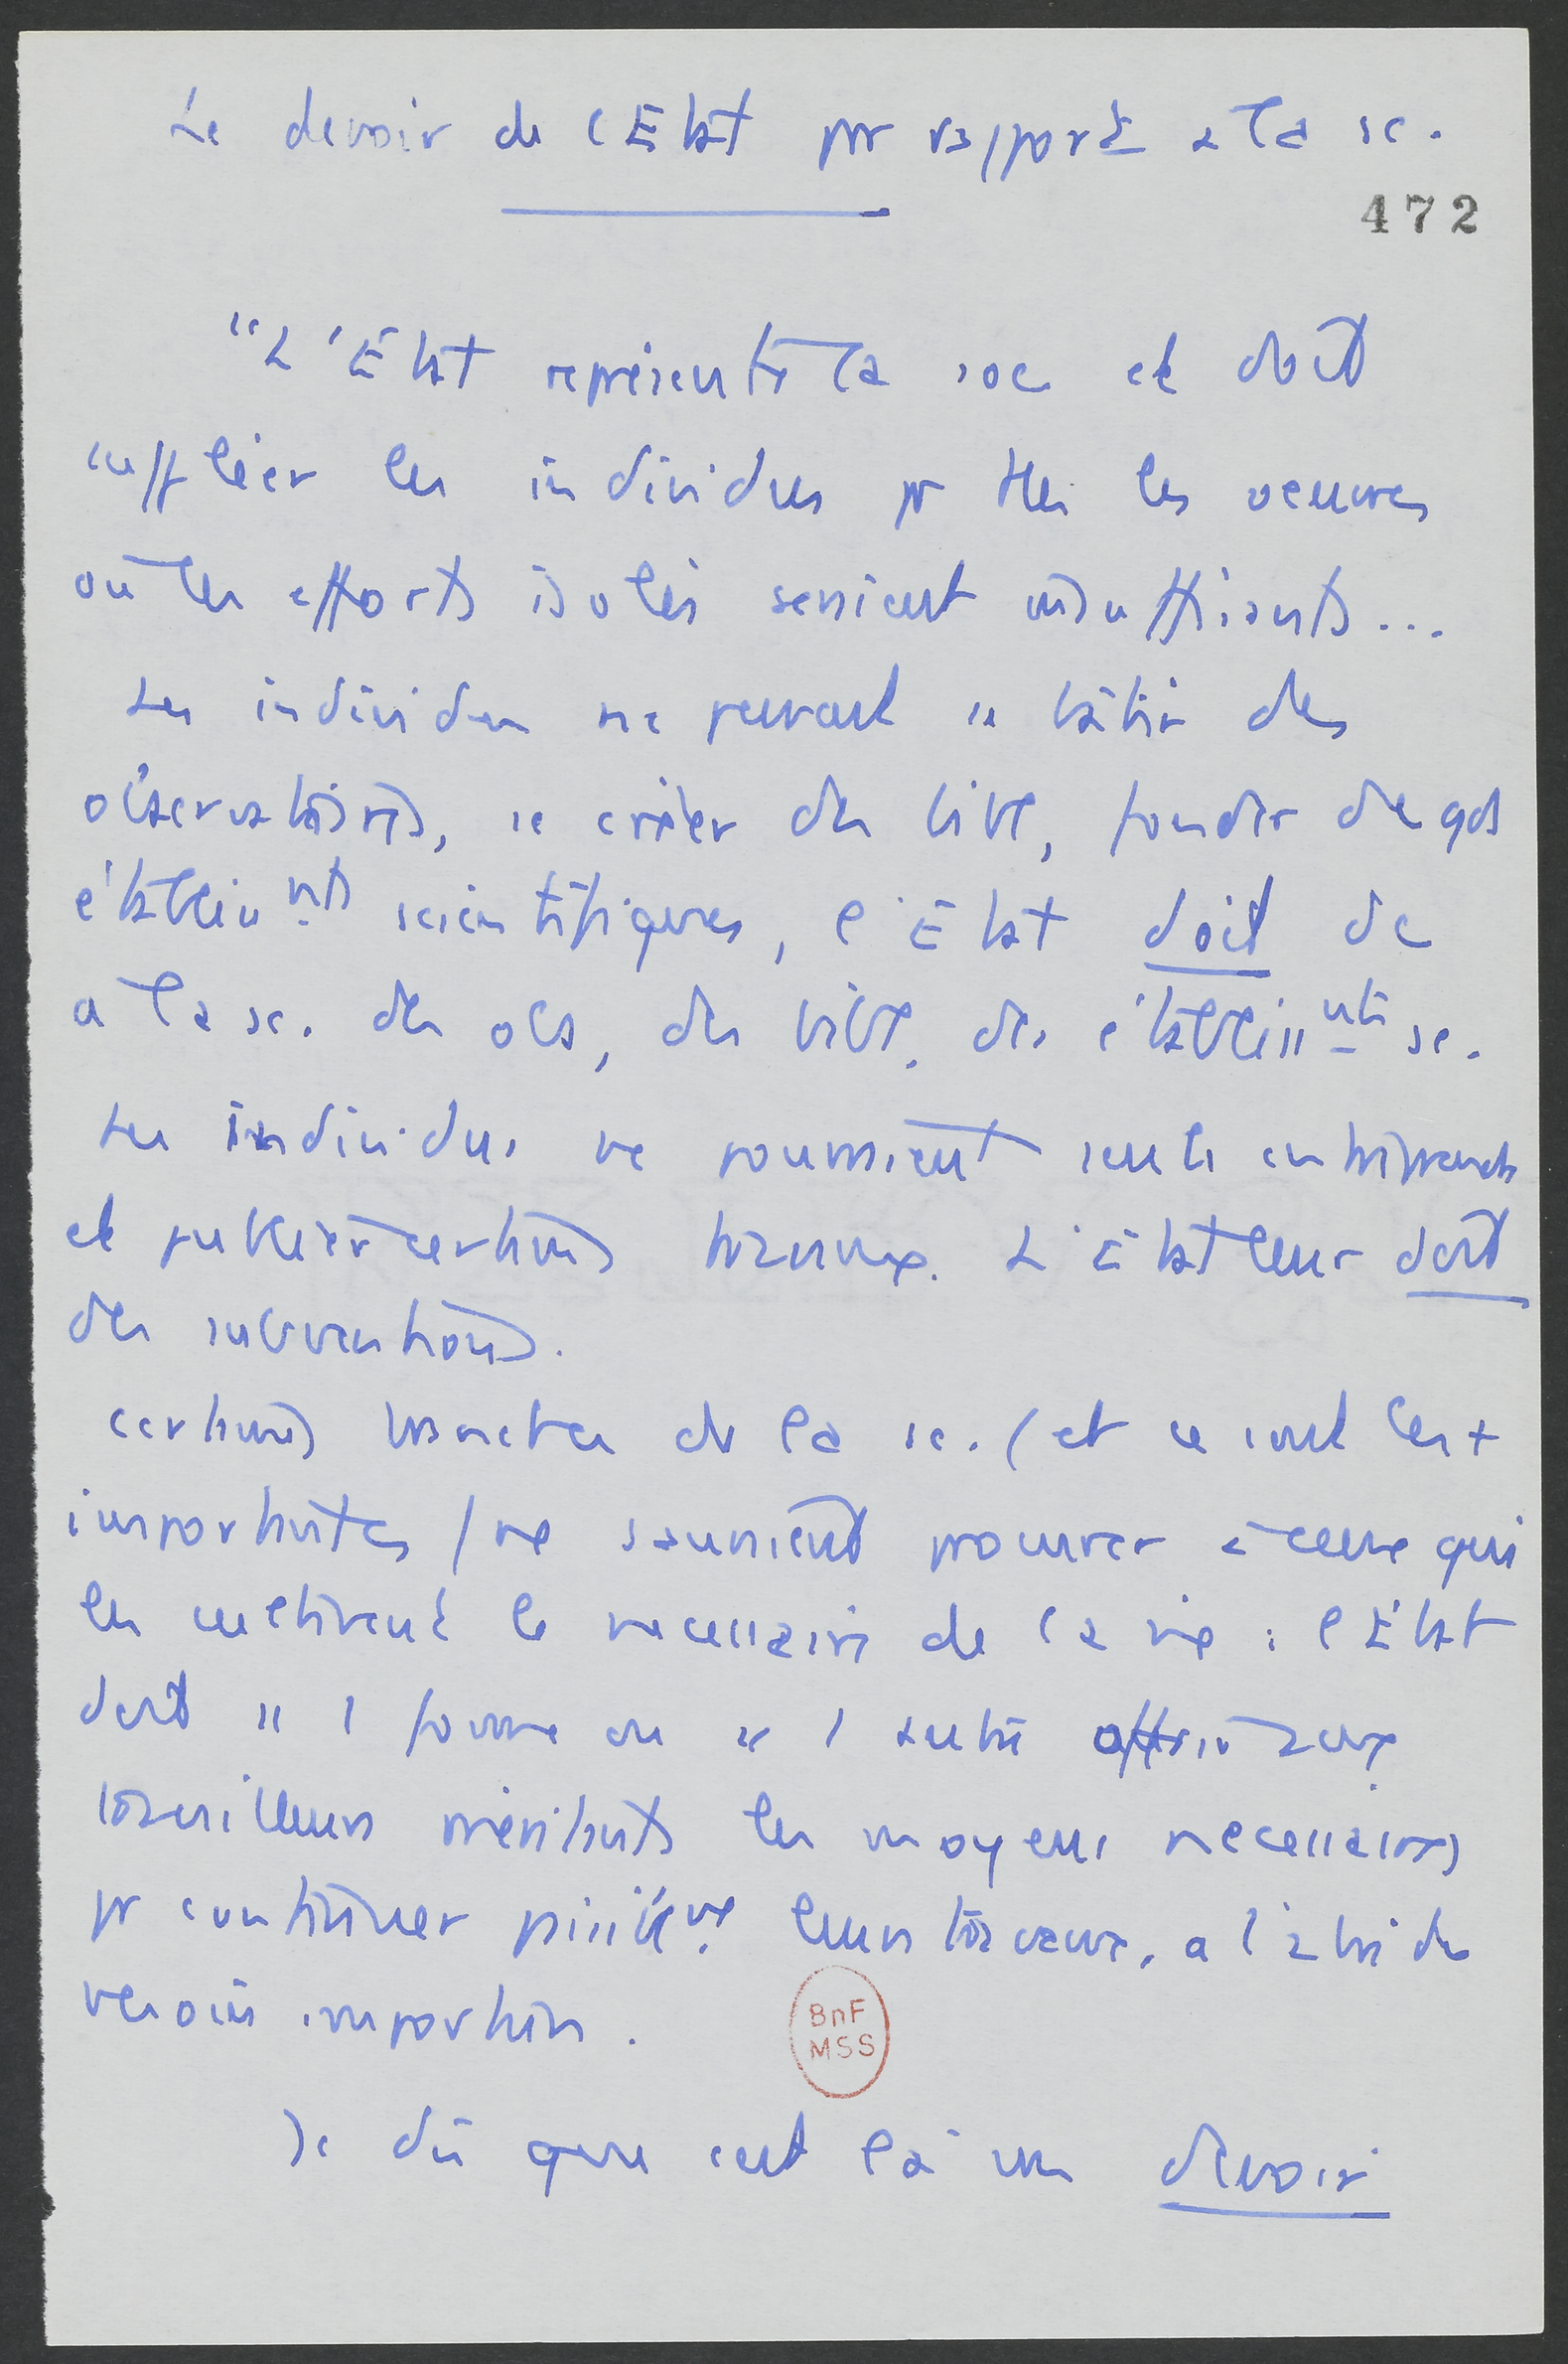 Le devoir de l'Etat par rapport a la sc.
472
"L'Etat représente la soc et doit
suppléer les individus pr ttes les oeuvres
où les efforts isolés seraient insuffisants...
Les individus ne peuvent se bâtir des
observatoires, se créer des bibl, fonder de gds
établissnts scientifiques, l'Etat doit de
a la sc. des obs, des bibl. des établissnts sc.
Les individus ne pourraient seuls entreprendre
et publier certains travaux. L'Etat leur doit
des subventions.
Certaines branches de la sc. (et ce sont les +
importantes) ne sauraient procurer à ceux qui
les cultivent le necessaire de la vie : l'Etat
doit ss 1 forme ou ss 1 autre offrir aux
travailleurs méritants les moyens necessaires
pr continuer leurs travaux, a l'abri du
besoin importun.
BnF
MSS
Je dis que cest là un devoir